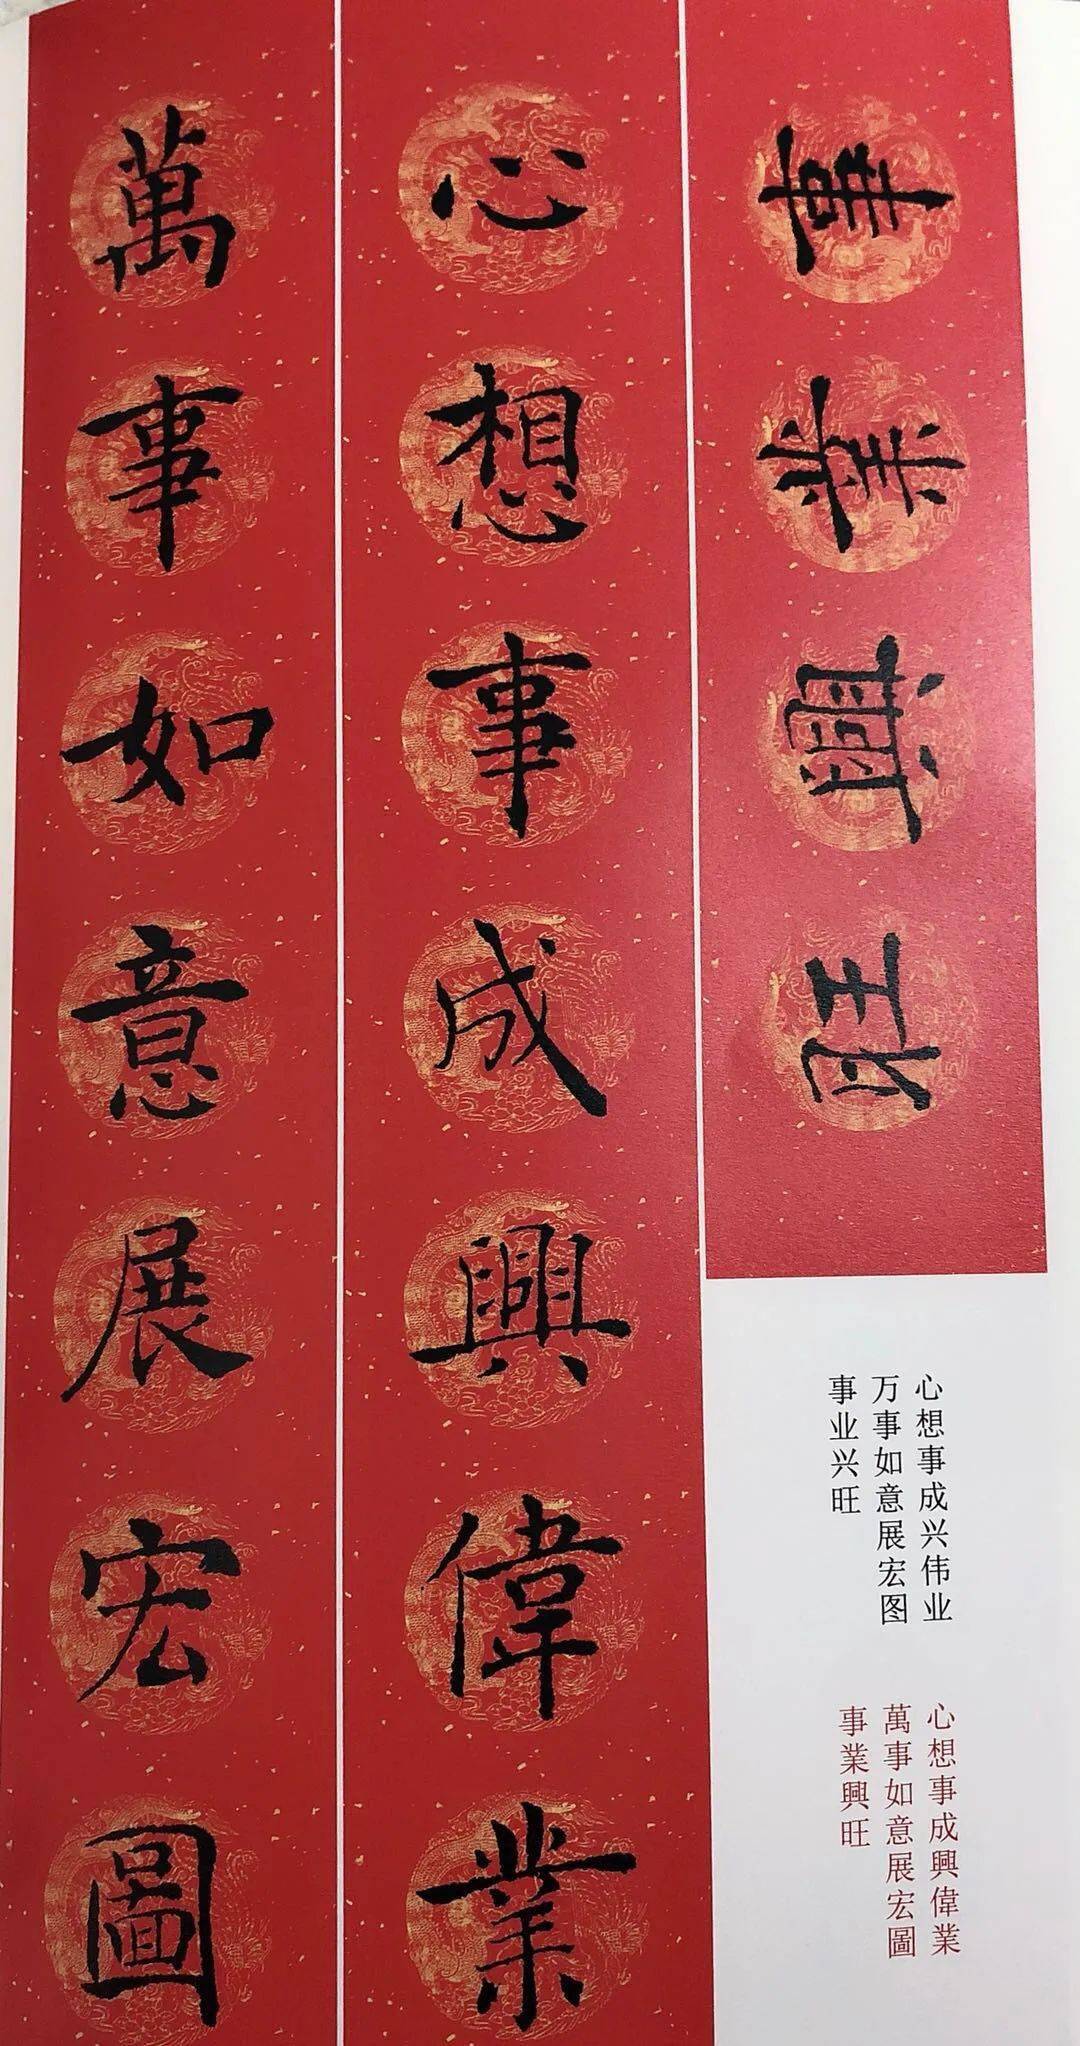 心想事成興偉業
萬事如意展宏圖
事業興旺
心想事成兴伟业
万事如意展宏图
事业兴旺
心想事成興偉業
萬事如意展宏圖
事業興旺